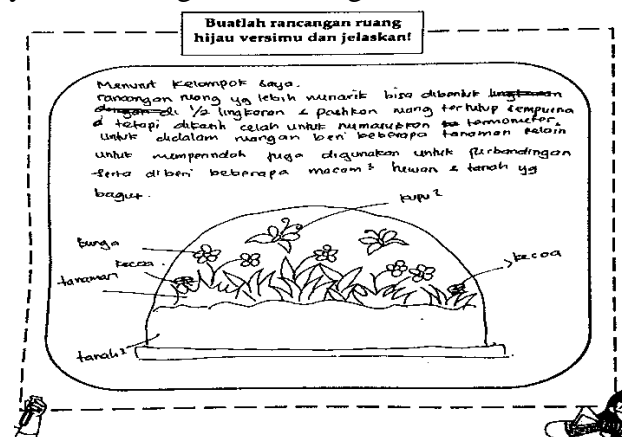 Buatlah rancangan ruang
hijau versimu dan jelaskan!
Menurut Kelompok saya.
rancangan ruang yg lebih menarik bisa dibentuk lingkaran
dengan di 1/2 lingkaran & pastikan ruang tertutup sempurna
tetapi dikasih celah untuk memasukkan termometer.
untuk didalam ruangan beri beberapa tanaman selain
untuk memperindah juga digunakan untuk perbandingan
serta diberi beberapa macam² hewan & tanah yg
bagus.
kupu²
bunga
kecoa
kecoa
tanaman
tanah²